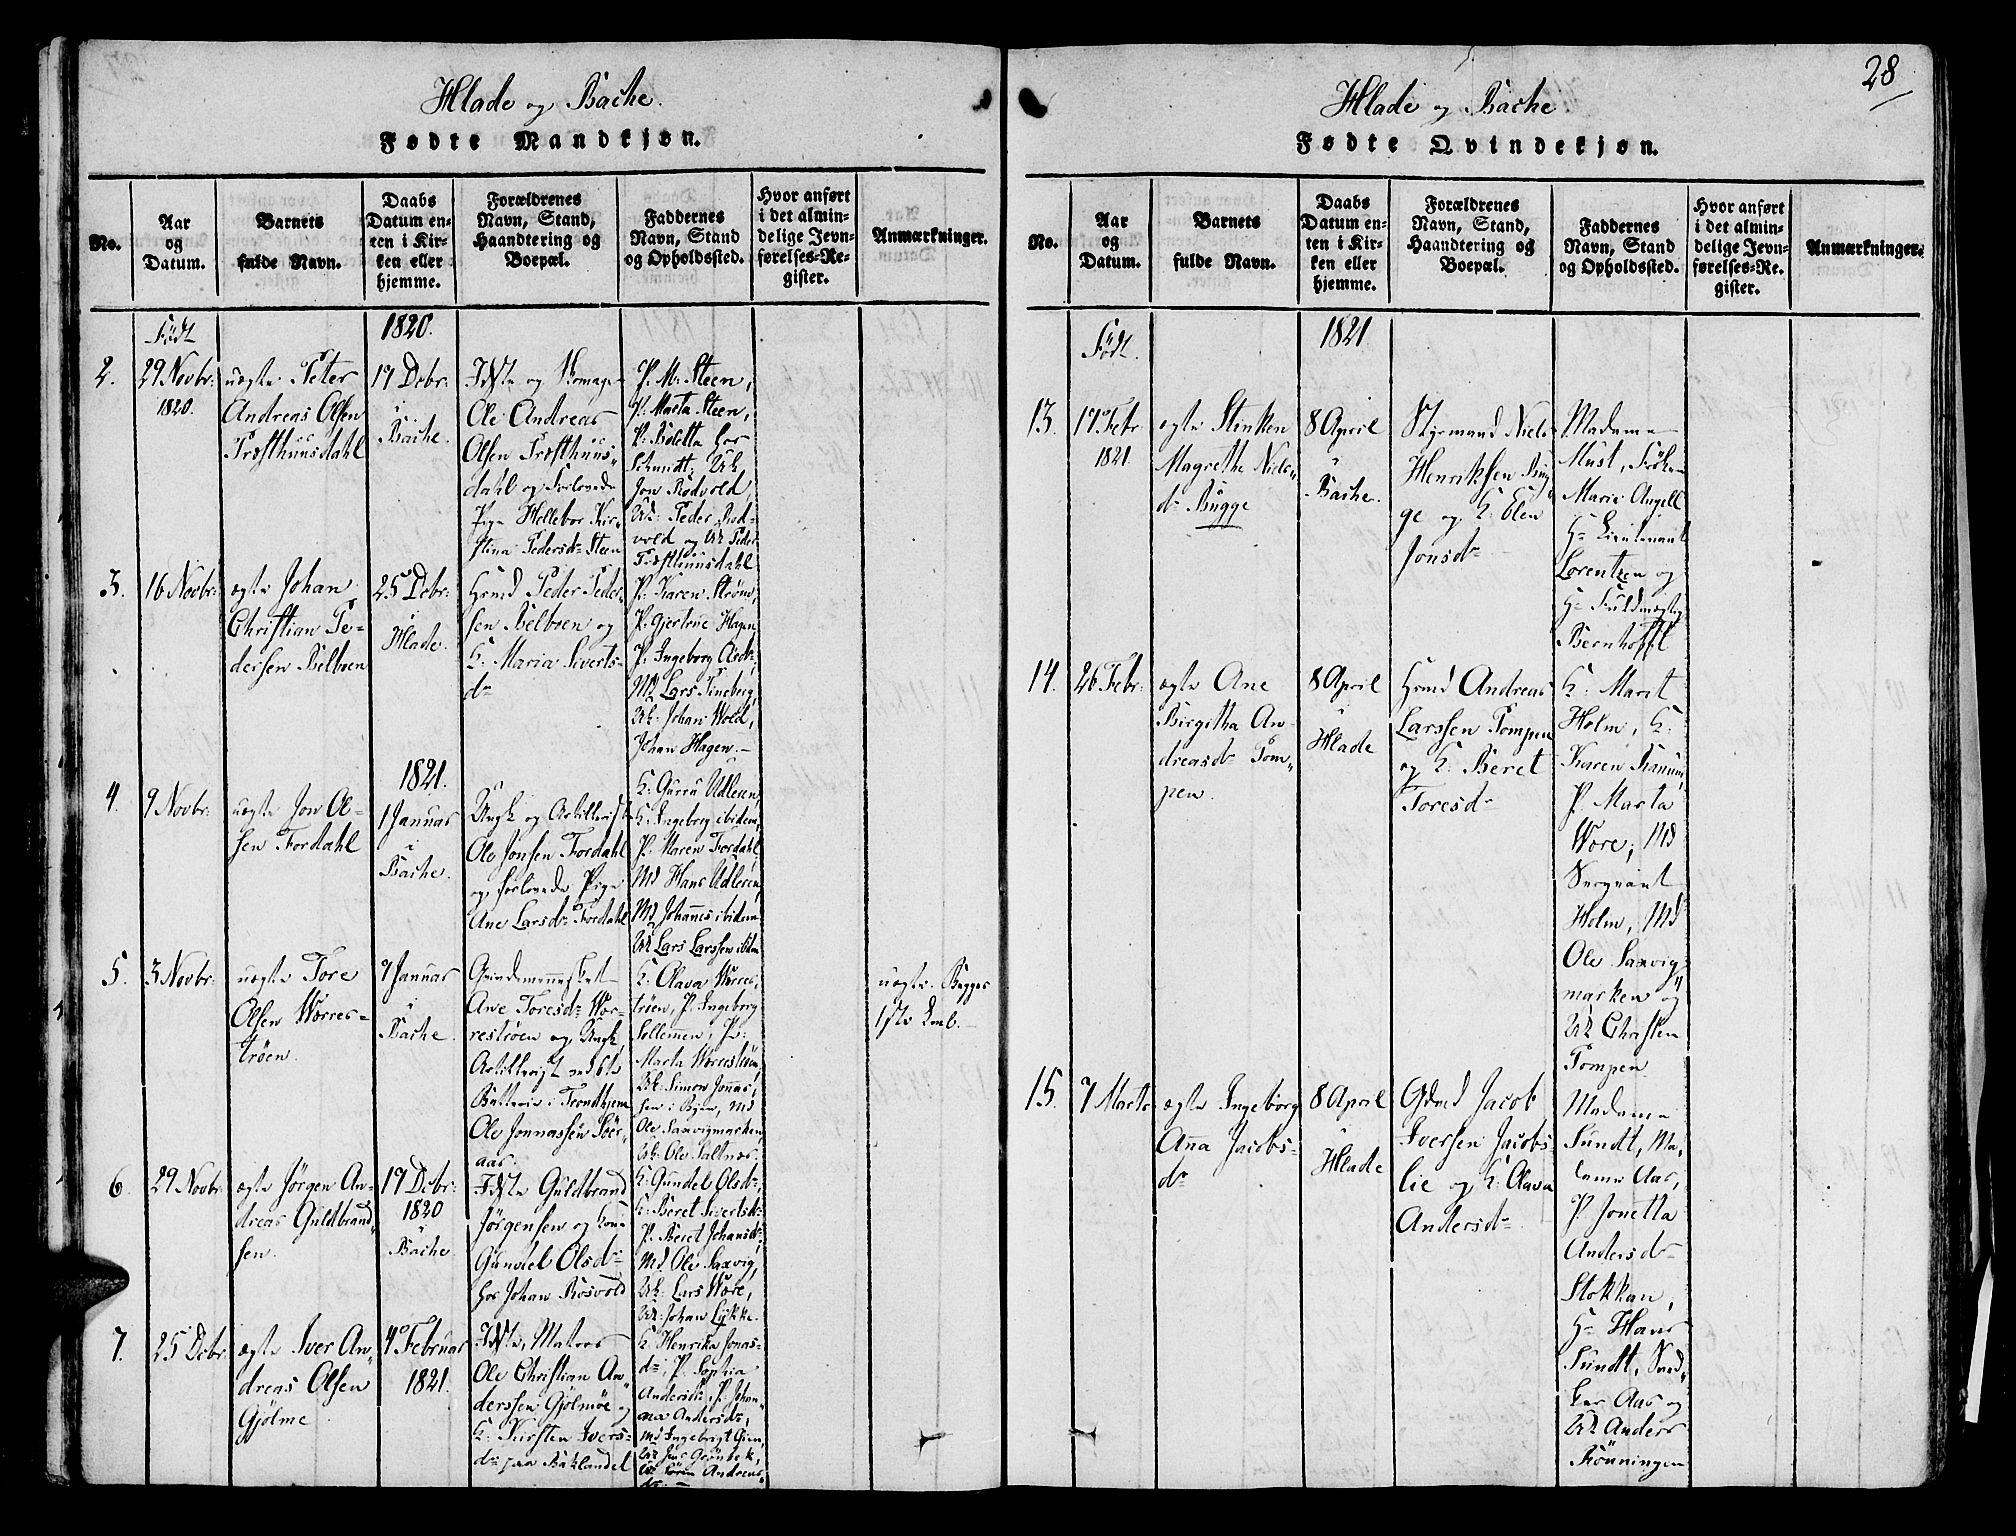 28
Hlade og Bache.
Fødte Mandkjøn.
No.
Aar
og
Datum.
Barnets
fulde Navn.
Daabs
Datum en-
ten i Kir-
ken eller
hjemme.
Forældrenes
Navn, Stand,
Haandtering og
Boepæl.
Faddernes
Navn, Stand
og Opholdssted.
Hvor anført
i det almin-
delige Jevn-
førelses-Re-
gister.
Anmærkninger.
Født
1820.
2.
29 Novbr:
1820.
uægte Peter
Andreas Olsen
Præsthuusdahl
17 Debr:
i
Bache.
Ole Andreas
Olsen Præsthuus-
dahl og Forlovede
Pige Hellebor Kir-
stina Pedersdr Steen
P. M: Steen,
P. Marta Steen,
P: Biletta hos
Schmidt, Uk
Jon Rodvold,
Uk: Peder Rod-
vold og Uk Peder
Præsthuusdahl
3.
16 Novbr:
ægte Johan
Christian Pe-
dersen Belboen
25 Debr:
i
Hlade.
Hsmd Peder Peder-
sen Belboen og
K: Maria Siverts-
dr
P: Karen Strøm,
P: Gjertrue Hagen
P. Ingeborg Olsdr,
Md Lars Tineberg,
Uk: Johan Wold,
Johan Hagen.
4.
9 Novbr:
uægte Jon Ol-
sen Fordahl
1821.
1 Januar
i
Bache.
Ungk og Artillerist
Ole Jonsen Fordahl
og forlovede Pige
Ane Larsdr Fordahl
K: Gurru Udleren,
K: Ingeborg ibidem,
P. Maren Fordahl,
Md Hans Udleren,
Md Johannes ibidem
Uk Lars Larssen ibidem
5.
3 Novbr:
uægte Tore
Olsen Worres-
trøen.
7 Januar
i
Bache.
Qvindemennesket
Ane Toresdr Wor-
restrøen og Ungk
Artillerist ved 5te
Batterie i Trondhjem
Ole Jonnassen Soer-
aas.
K: Olava Worres-
trøen, P. Ingeborg
Sollemen, P:
Marta Worrestrøen,
Uk: Simon Jonas-
sen i Byen, Md
Ole Saxvigmarken,
Uk: Ole Saltnes.
uægte. Begges
1ste Leib.
6.
29 Novbr:
ægte Jørgen An-
dreas Guldbrand-
sen.
17 Debr:
1820
i
Bache
Idste Guldbrand
Jørgensen og Kone
Gundel Olsdr
hos Johan Rosvold
K: Gundel Olsdr,
K: Beret Sivertsdr
P. Beret Johansdr,
Md Ole Saxvig,
Uk: Lars Wore,
Uk: Johan Lykke.
7.
25 Debr:
ægte Iver An-
dreas Olsen
Gjølme
4 Februar
1821.
Idste, Matros
Ole Christian An-
derssen Gjølmøe og
K: Kirsten Ivers-
dr paa Baklandet
K: Henrika Jonas-
dr, P. Sophia
Andersdr, P. Johan-
na Andersdr,
Md Ingebrigt Gien,
Uk Jens Grønbek,
Uk Søren Andreas-
Hlade og Bache
Fødte Qvindekjøn.
No.
Aar
og
Datum.
Barnets
fulde Navn.
Daabs
Datum en-
ten i Kir-
ken eller
hjemme.
Forældrenes
Navn, Stand,
Haandtering og
Boepæl.
Faddernes
Navn, Stand
og Opholdssted.
Hvor anført
i det almin-
delige Jevn-
førelses-Re-
gister.
Anmærkninger.
Født.
1821
13.
17 Febr
1821.
ægte Stinken
Magrethe Niels-
dr Bugge
8 April
i
Bache.
Styrmand Niels
Henriksen Bug-
ge og K: Elen
Jonsdr
Madame
Must, Frøken
Marie Angell
Hr Lieutenant
Lorentzen og
Hr Fuldmægtig
Bernhofft
14.
26 Febr:
ægte Ane
Birgitha An-
dreasdr Tom-
pen.
8 April
i
Hlade
Hsmd Andreas
Larssen Tompen
og K. Beret
Toresdr
K: Marit
Holm, K:
Karen Ranum,
P. Marta
Wore, Md
Sergeant
Holm, Md
Ole Saxvig-
marken og
Uk Christen
Tompen
15.
7 Marts
ægte Ingeborg
Anna Jacobs-
dr
8 April
i
Hlade
Gdmd Jacob
Iversen Jacobs-
lie og K: Olava
Andersdr
Madame
Sundt, Ma-
dame Aas,
P. Jonetta
Andersdr
Stokkan,
Hr Hans
Sundt, Sned-
ker Aas og
Uk Anders
Rønningen